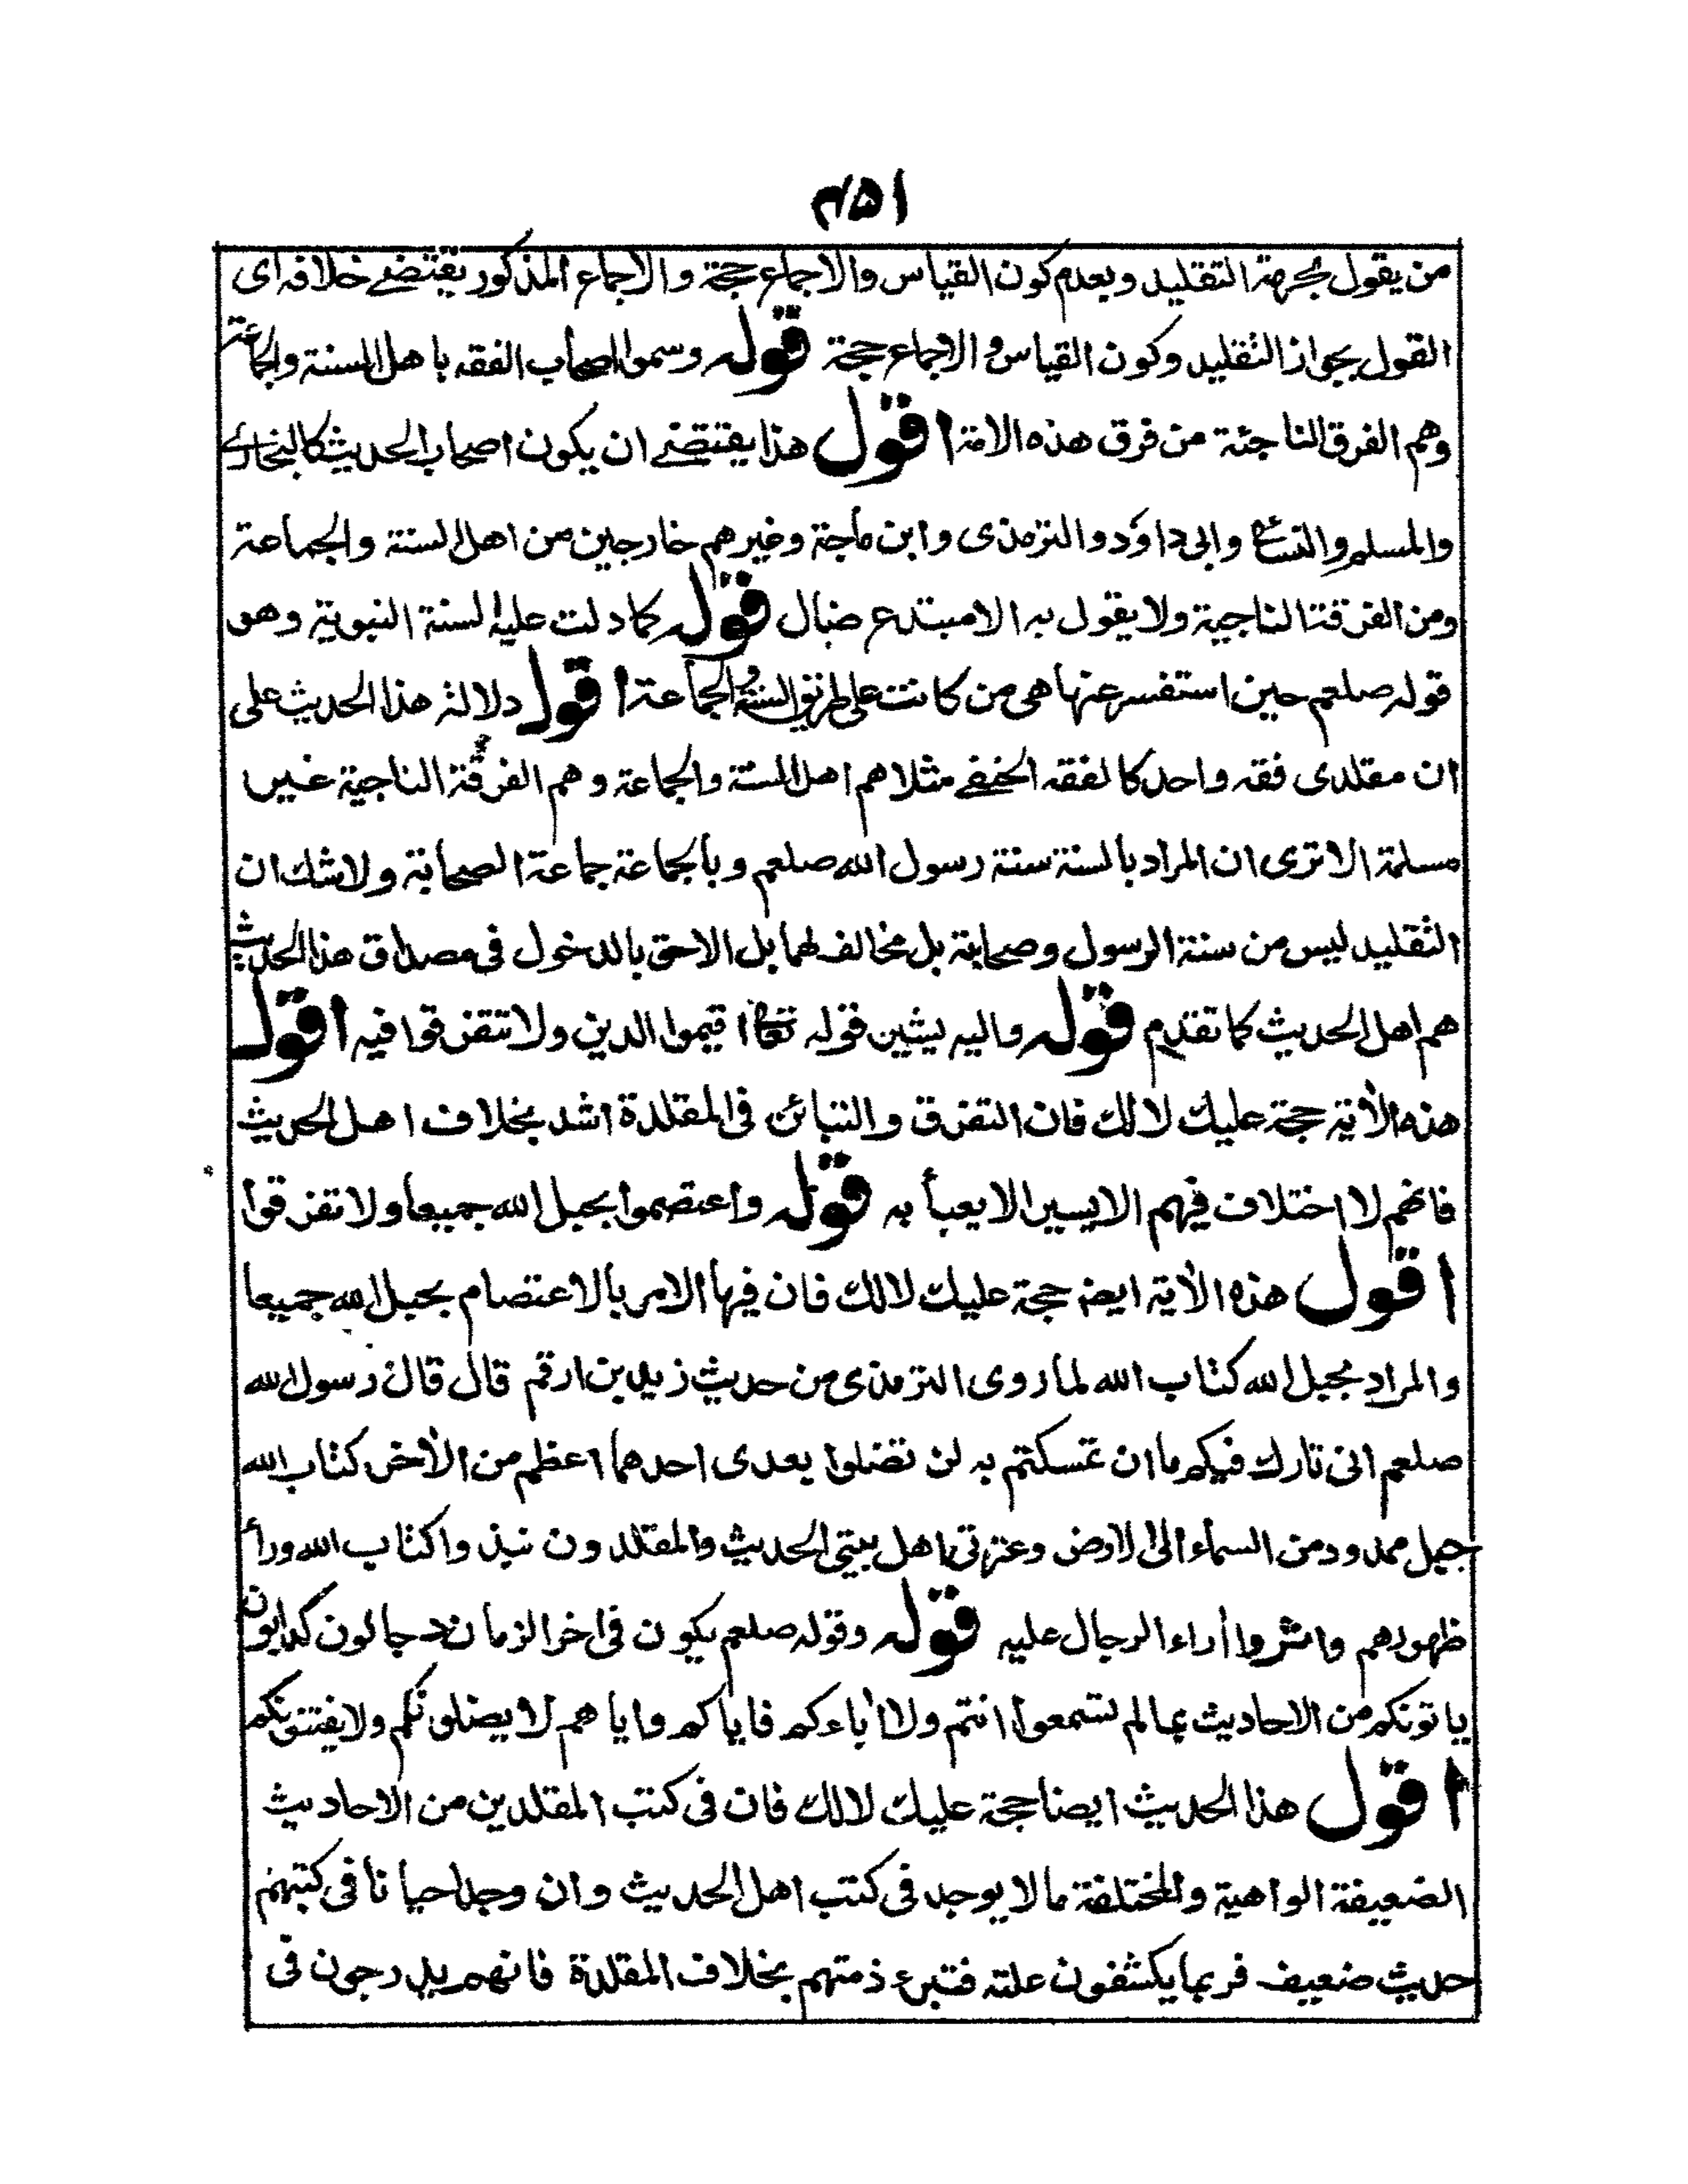 ۴۵۱
من يقول بحرمة التقليد وبعدم كون القياس والاجماع حجة والاجماع المذكور يقتضے خلافه اى
القول بجواز التقليد وكون القياس والاجماع حجة قوله وسموا اصحاب الفقه باهل السنة والجماعة
وهم الفرق الناجئة من فرق هذه الامة اقول هذا يقتضے ان يكون اصحاب الحديث كالبخارے
والمسلم والنسائے وابى داؤد والترمذى وابن ماجة وغيرهم خارجين من اهل السنة والجماعة
ومن الفرقة الناجية ولا يقول به الا مبتدع ضال قوله كما دلت عليه السنة النبوية وهو
قوله صلعم حين استفسر عنها هى من كانت على طريق السنة والجماعة اقول دلالة هذا الحديث على
ان مقلدى فقه واحد كالفقه الحنفے مثلا هم اهل السنة والجماعة وهم الفرقة الناجية غير
مسلمة الا ترى ان المراد بالسنة سنة رسول الله صلعم وبالجماعة جماعة الصحابة ولا شك ان
التقليد ليس من سنة الرسول وصحابة بل مخالف لهما بل الاحق بالدخول فى مصداق هذا الحديث
هم اهل الحديث كما تقدم قوله واليه يشير قوله تعالى اقيموا الدين ولا تتفرقوا فيه اقول
هذه الآية حجة عليك لا لك فان التفرق والتبائن فى المقلدة اشد بخلاف اهل الحديث
فانهم لا اختلاف فيهم الا يسير الا يعبأ به قوله واعتصموا بحبل الله جميعا ولا تفرقوا
اقول هذه الآية ايضا حجة عليك لا لك فان فيها الامر بالاعتصام بحبل الله جميعا
والمراد بحبل الله كتاب الله لما روى الترمذى من حديث زيد بن ارقم قال قال رسول الله
صلعم انى تارك فيكم ما ان تمسكتم به لن تضلوا بعدى احدهما اعظم من الآخر كتاب الله
حبل ممدود من السماء الى الارض وعترتى اهل بيتى الحديث والمقلدون نبذوا كتاب الله وراء
ظهورهم واثروا آراء الرجال عليه قوله وقوله صلعم يكون فى اخر الزمان دجالون كذابون
ياتونكم من الاحاديث بما لم تسمعوا انتم ولا آباءكم فاياكم واياهم لا يضلونكم ولا يفتنونكم
اقول هذا الحديث ايضا حجة عليك لا لك فان فى كتب المقلدين من الاحاديث
الضعيفة الواهية والمختلفة ما لا يوجد فى كتب اهل الحديث وان وجد احيانا فى كتبهم
حديث ضعيف فربما يكشفون علته فتبرء ذمتهم بخلاف المقلدة فانهم يدرجون فى